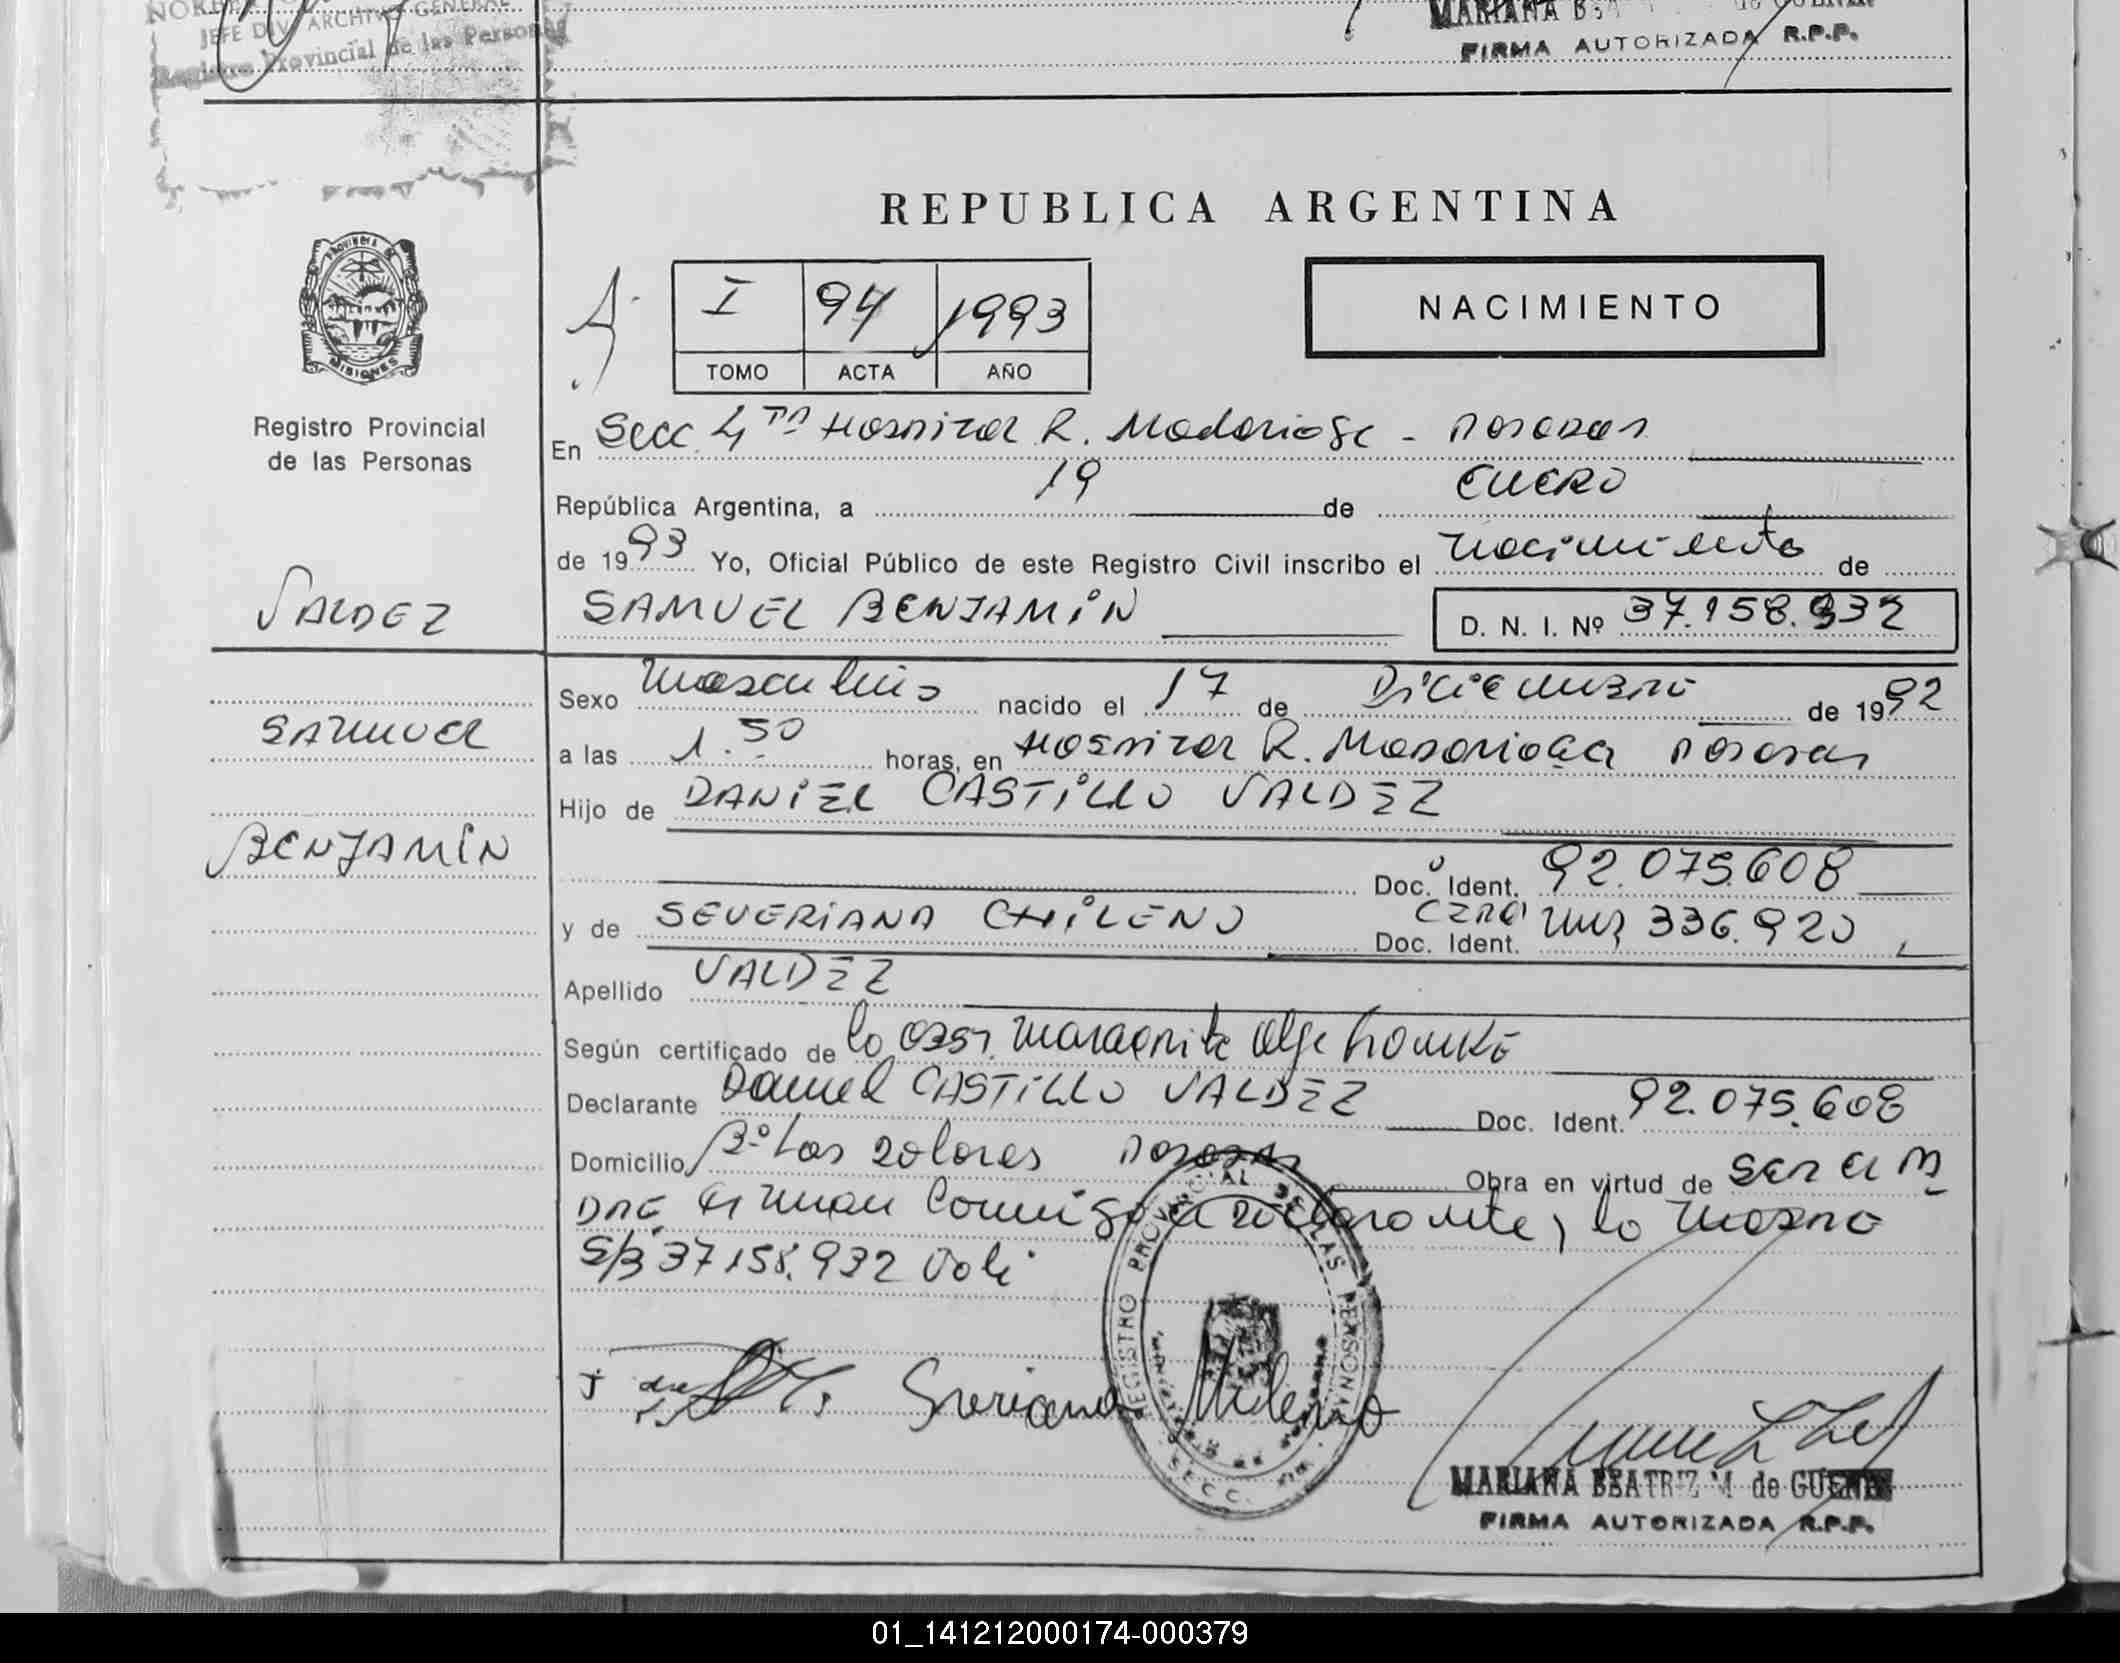 JEFE DIV. ARCHIVO GENERAL
Registro Provincial de las Personas
MARIANA B
FIRMA AUTORIZADA R.P.P.
REPUBLICA ARGENTINA
PROVINCIA DE
MISIONES
I 94 1993
TOMO ACTA AÑO
NACIMIENTO
Registro Provincial
de las Personas
En Secc 4ta Hospital R. Madariaga - Posadas
República Argentina, a 19 de Enero
de 1993 Yo, Oficial Público de este Registro Civil inscribo el nacimiento de
VALDEZ
SAMUEL BENJAMIN D. N. I. Nº 37.158.932
Sexo masculino nacido el 17 de Diciembre de 1992
SAMUEL
a las 1.50 horas, en Hospital R. Madariaga Posadas
Hijo de DANIEL CASTILLO VALDEZ
BENJAMIN
Doc. Ident. 92.075.608
y de SEVERIANA CHILENO Doc. Ident. 336.920
Apellido VALDEZ
Según certificado de la Obst. Margarita Olga
Declarante Daniel CASTILLO VALDEZ Doc. Ident. 92.075.608
Domicilio Bº Los Dolores Posadas Obra en virtud de ser el Pa
dre firman conmigo el declarante y la madre
S/B 37.158.932 Vale
REGISTRO PROVINCIAL DE LAS PERSONAS
SECC.
Severiana Chileno
MARIANA BEATRIZ M. de
FIRMA AUTORIZADA R.P.P.
01_141212000174-000379